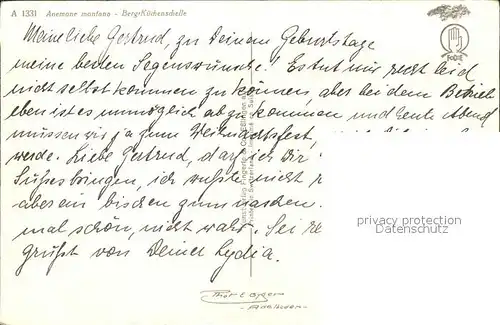 A 1331 Anemone montana - Berg-Küchenschelle
Mein liebe Gertrud, zu Deinem Geburtstage
meine besten Segenswünsche! Es tut mir recht leid
nicht selbst kommen zu können, aber bei dem Betrieb
eben ist es unmöglich abzukommen und heute Abend
müssen wir ja zum Weihnachtsfest,
werde. Liebe Gertrud, darf ich Dir
Süßes bringen, ich wußte nicht
aber ein bischen zum naschen.
mal schön, nicht wahr. Sei
grüßt von Deiner Lydia.
privacy protection
watermark